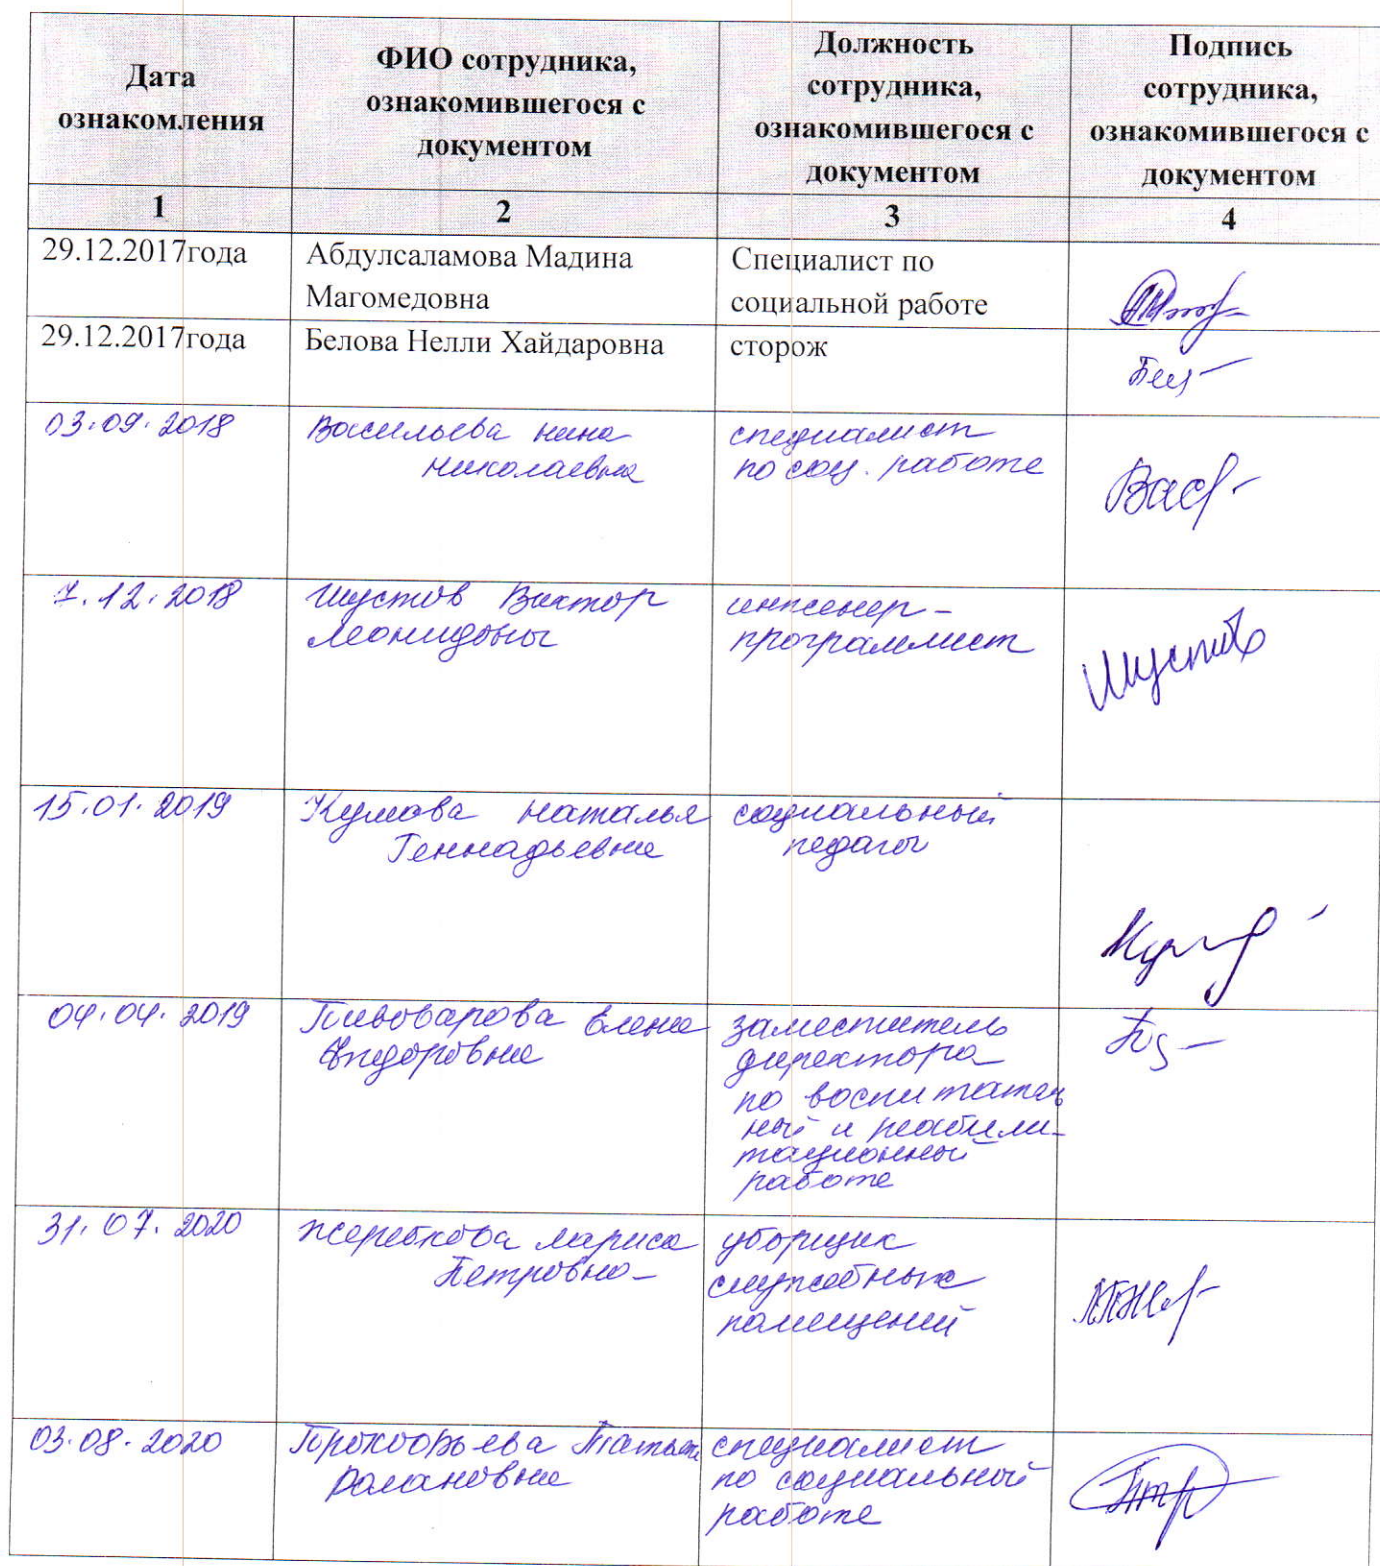 Дата
ознакомления
ФИО сотрудника,
ознакомившегося с
документом
Должность
сотрудника,
ознакомившегося с
документом
Подпись
сотрудника,
ознакомившегося с
документом
1
2
3
4
29.12.2017года
Абдулсаламова Мадина
Магомедовна
Специалист по
социальной работе
29.12.2017года
Белова Нелли Хайдаровна
сторож
03.09.2018
Васильева Нина
Николаевна
специалист
по соц. работе
Вас
7.12.2018
Шустов Виктор
Леонидович
инженер-
программист
Шустов
15.01.2019
Кумова Наталья
Геннадьевна
социальный
педагог
04.04.2019
Пивоварова Елена
заместитель
директора
по воспитатель
ной и реабили-
тационной
работе
31.07.2020
Жеребкова Лариса
Петровна
уборщик
служебных
помещений
03.08.2020
Прокофьева Татьяна
Романовна
специалист
по социальной
работе